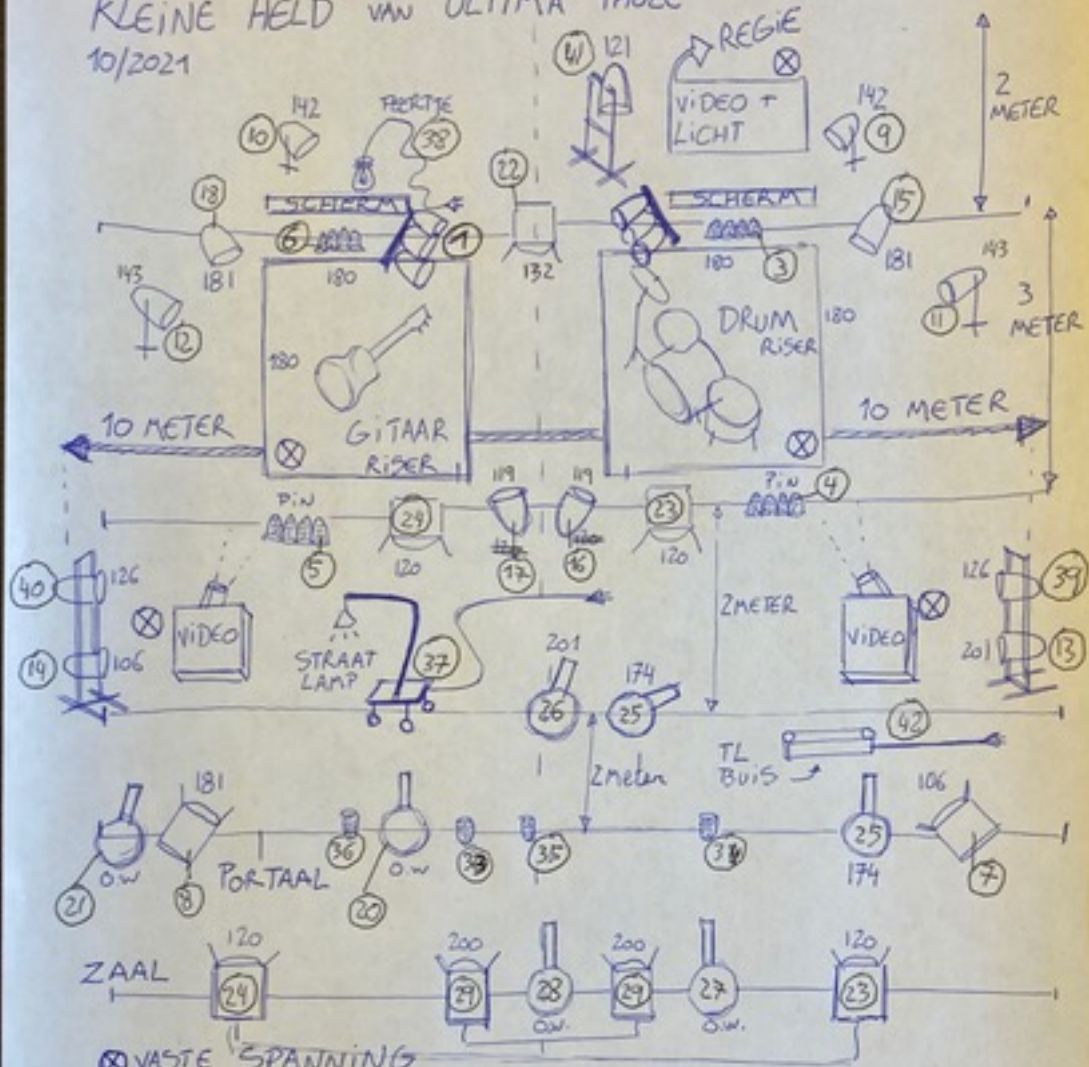 KLEINE HELD VAN ULTIMA THULE
10/2021
41 121
REGIE
VIDEO +
LICHT
2
METER
142
10
PEERTJE
38
142
9
22
18
SCHERM
SCHERM
15
6
1
181
180
132
180
3
181
143
12
143
11
3
METER
180
DRUM
RISER
180
10 METER
GITAAR
RISER
10 METER
PiN
5
24
120
119
17
119
16
23
120
PiN
4
40
126
14
106
ViDEO
STRAAT
LAMP
37
201
26
174
25
2 METER
ViDEO
126
39
201
13
42
TL
BUIS
2 meter
181
21
O.W
8
PORTAAL
36
20
O.W
35
25
174
106
7
ZAAL
120
24
200
29
28
O.W.
200
29
27
O.W.
120
23
VASTE SPANNING